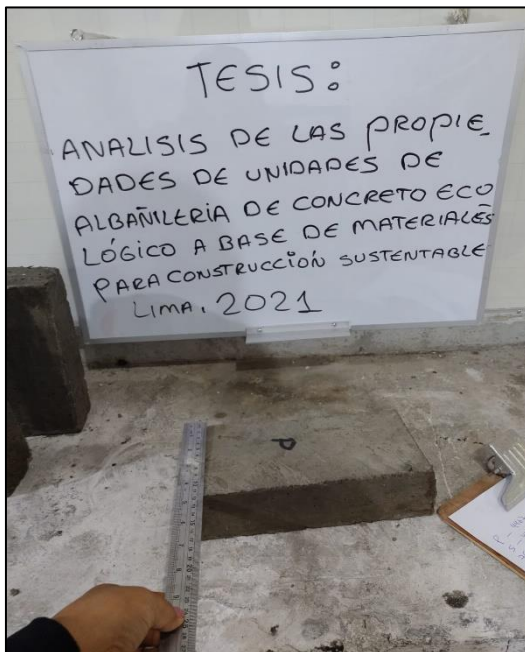 TESIS:
ANALISIS DE LAS PROPIE_
DADES DE UNIDADES DE
ALBAÑILERIA DE CONCRETO ECO
LÓGICO A BASE DE MATERIALES
PARA CONSTRUCCIÓN SUSTENTABLE
LIMA, 2021
P